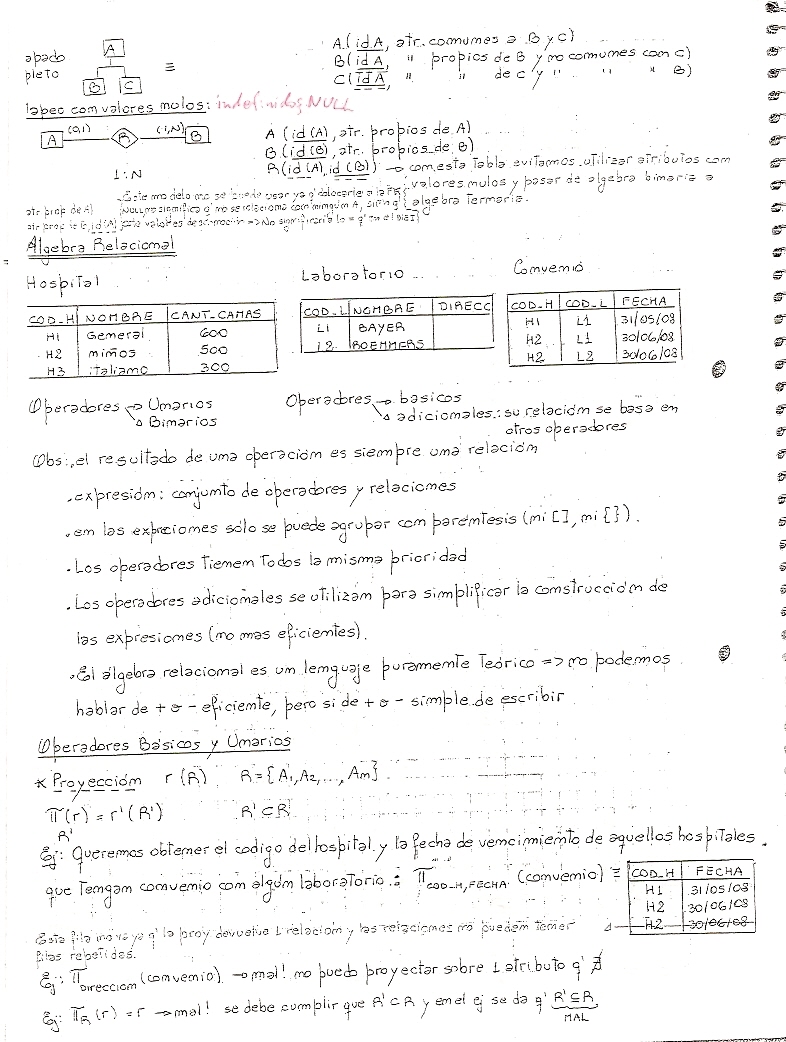 A
apado
pleto
≡
B C
A(idA, atr. comunes a B y C)
B(idA, " propios de B y no comunes con C)
C(idA, " " de C y " " " B)
Tabec con valores nulos: indefinidos NULL
A (0,1) R (1,N) B
1:N
A (id(A), atr. propios de A)
B (id(B), atr. propios de B)
R(id(A), id(B)) → con esta Tabla evitamos utilizar atributos con
valores nulos y pasar de algebra binaria a
algebra Ternaria.
Este modelo no se puede usar ya q'
atr prop de A)
Null no significa q' no se relaciona con ningún A, sino q'
atr prop de B, id(A)
Algebra Relacional
Hospital
COD_H NOMBRE CANT_CAMAS
H1 General 600
H2 niños 500
H3 italiano 300
Laboratorio
COD_L NOMBRE DIRECC
L1 BAYER
L2 ROEMMERS
Convenio
COD_H COD_L FECHA
H1 L1 31/05/08
H2 L1 30/06/08
H2 L2 30/06/08
Operadores → Unarios
→ Binarios
Operadores → basicos
→ adicionales: su relación se basa en
otros operadores
Obs: el resultado de una operación es siempre una relación
. expresión: conjunto de operadores y relaciones
. en las expreciones sólo se puede agrupar con paréntesis (ni [], ni {}).
. Los operadores tienen Todos la misma prioridad
. Los operadores adicionales se utilizan para simplificar la construcción de
las expresiones (no mas eficientes).
. El álgebra relacional es un lenguaje puramente Teórico => no podemos
hablar de + o - eficiente, pero si de + o - simple de escribir
Operadores Básicos y Unarios
* Proyección r(R) R = {A1, A2, ..., An}
π(r) = r'(R') R' ⊂ R
R'
Ej: Queremos obtener el codigo del hospital y la fecha de vencimiento de aquellos hospitales
que Tengan convenio con algún laboratorio: π COD_H, FECHA (convenio) ≡
COD_H FECHA
H1 31/05/08
H2 30/06/08
H2 30/06/08
Esta fila no va ya q' la proy devuelve 1 relación y las relaciones no pueden tener
filas repetidas.
Ej: π Direccion (convenio) → mal! no puedo proyectar sobre 1 atributo q' ∄
Ej: π R (r) = r → mal! se debe cumplir que R' ⊂ R y en el ej se da q' R' ⊆ R
MAL